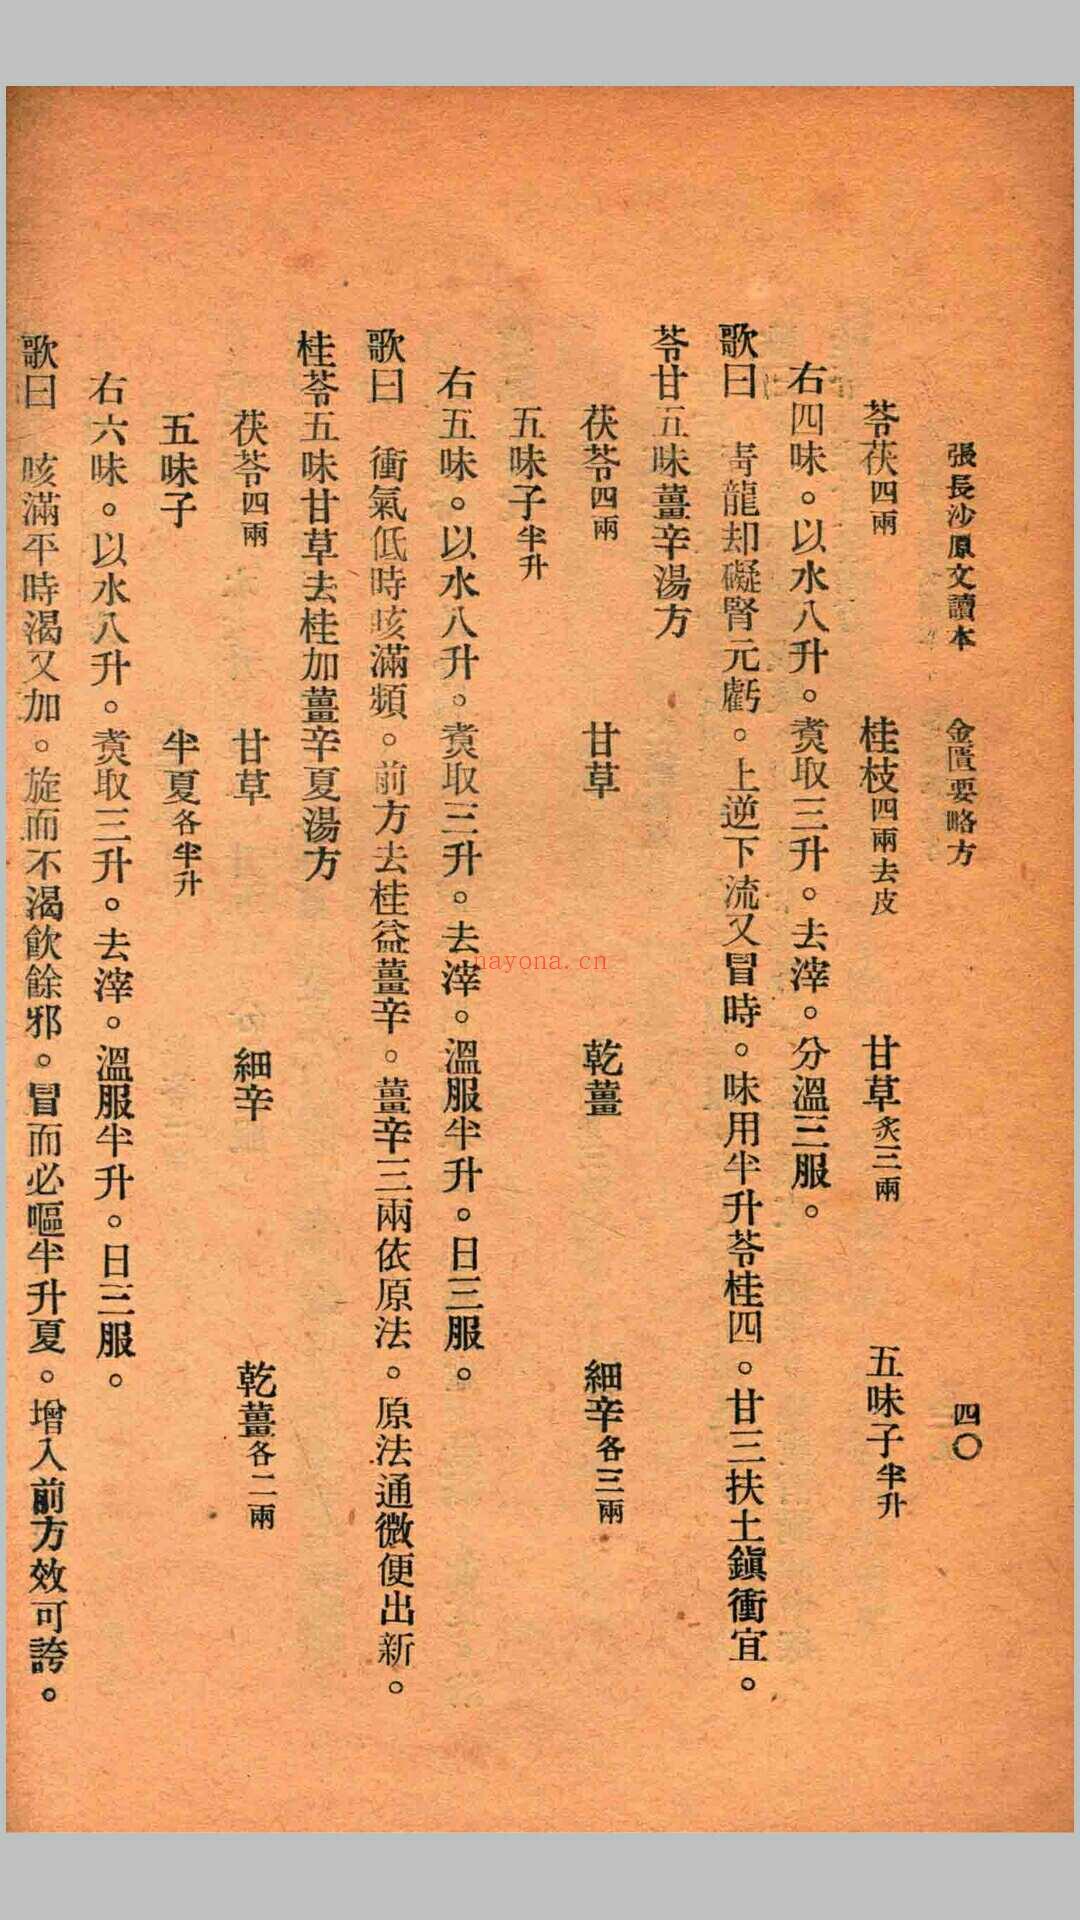 張長沙原文讀本　金匱要略方　四〇
苓茯四兩　桂枝四兩去皮　甘草炙三兩　五味子半升
右四味。以水八升。煑取三升。去滓。分溫三服。
歌曰　青龍却礙腎元虧。上逆下流又冒時。味用半升苓桂四。甘三扶土鎭衝宜。
苓甘五味薑辛湯方
茯苓四兩　甘草　乾薑　細辛各三兩
五味子半升
右五味。以水八升。煑取三升。去滓。溫服半升。日三服。
歌曰　衝氣低時咳滿頻。前方去桂益薑辛。薑辛三兩依原法。原法通微便出新。
桂苓五味甘草去桂加薑辛夏湯方
茯苓四兩　甘草　細辛　乾薑各二兩
五味子　半夏各半升
右六味。以水八升。煑取三升。去滓。溫服半升。日三服。
歌曰　咳滿平時渴又加。旋而不渴飲餘邪。冒而必嘔半升夏。增入前方效可誇。
nayona.cn